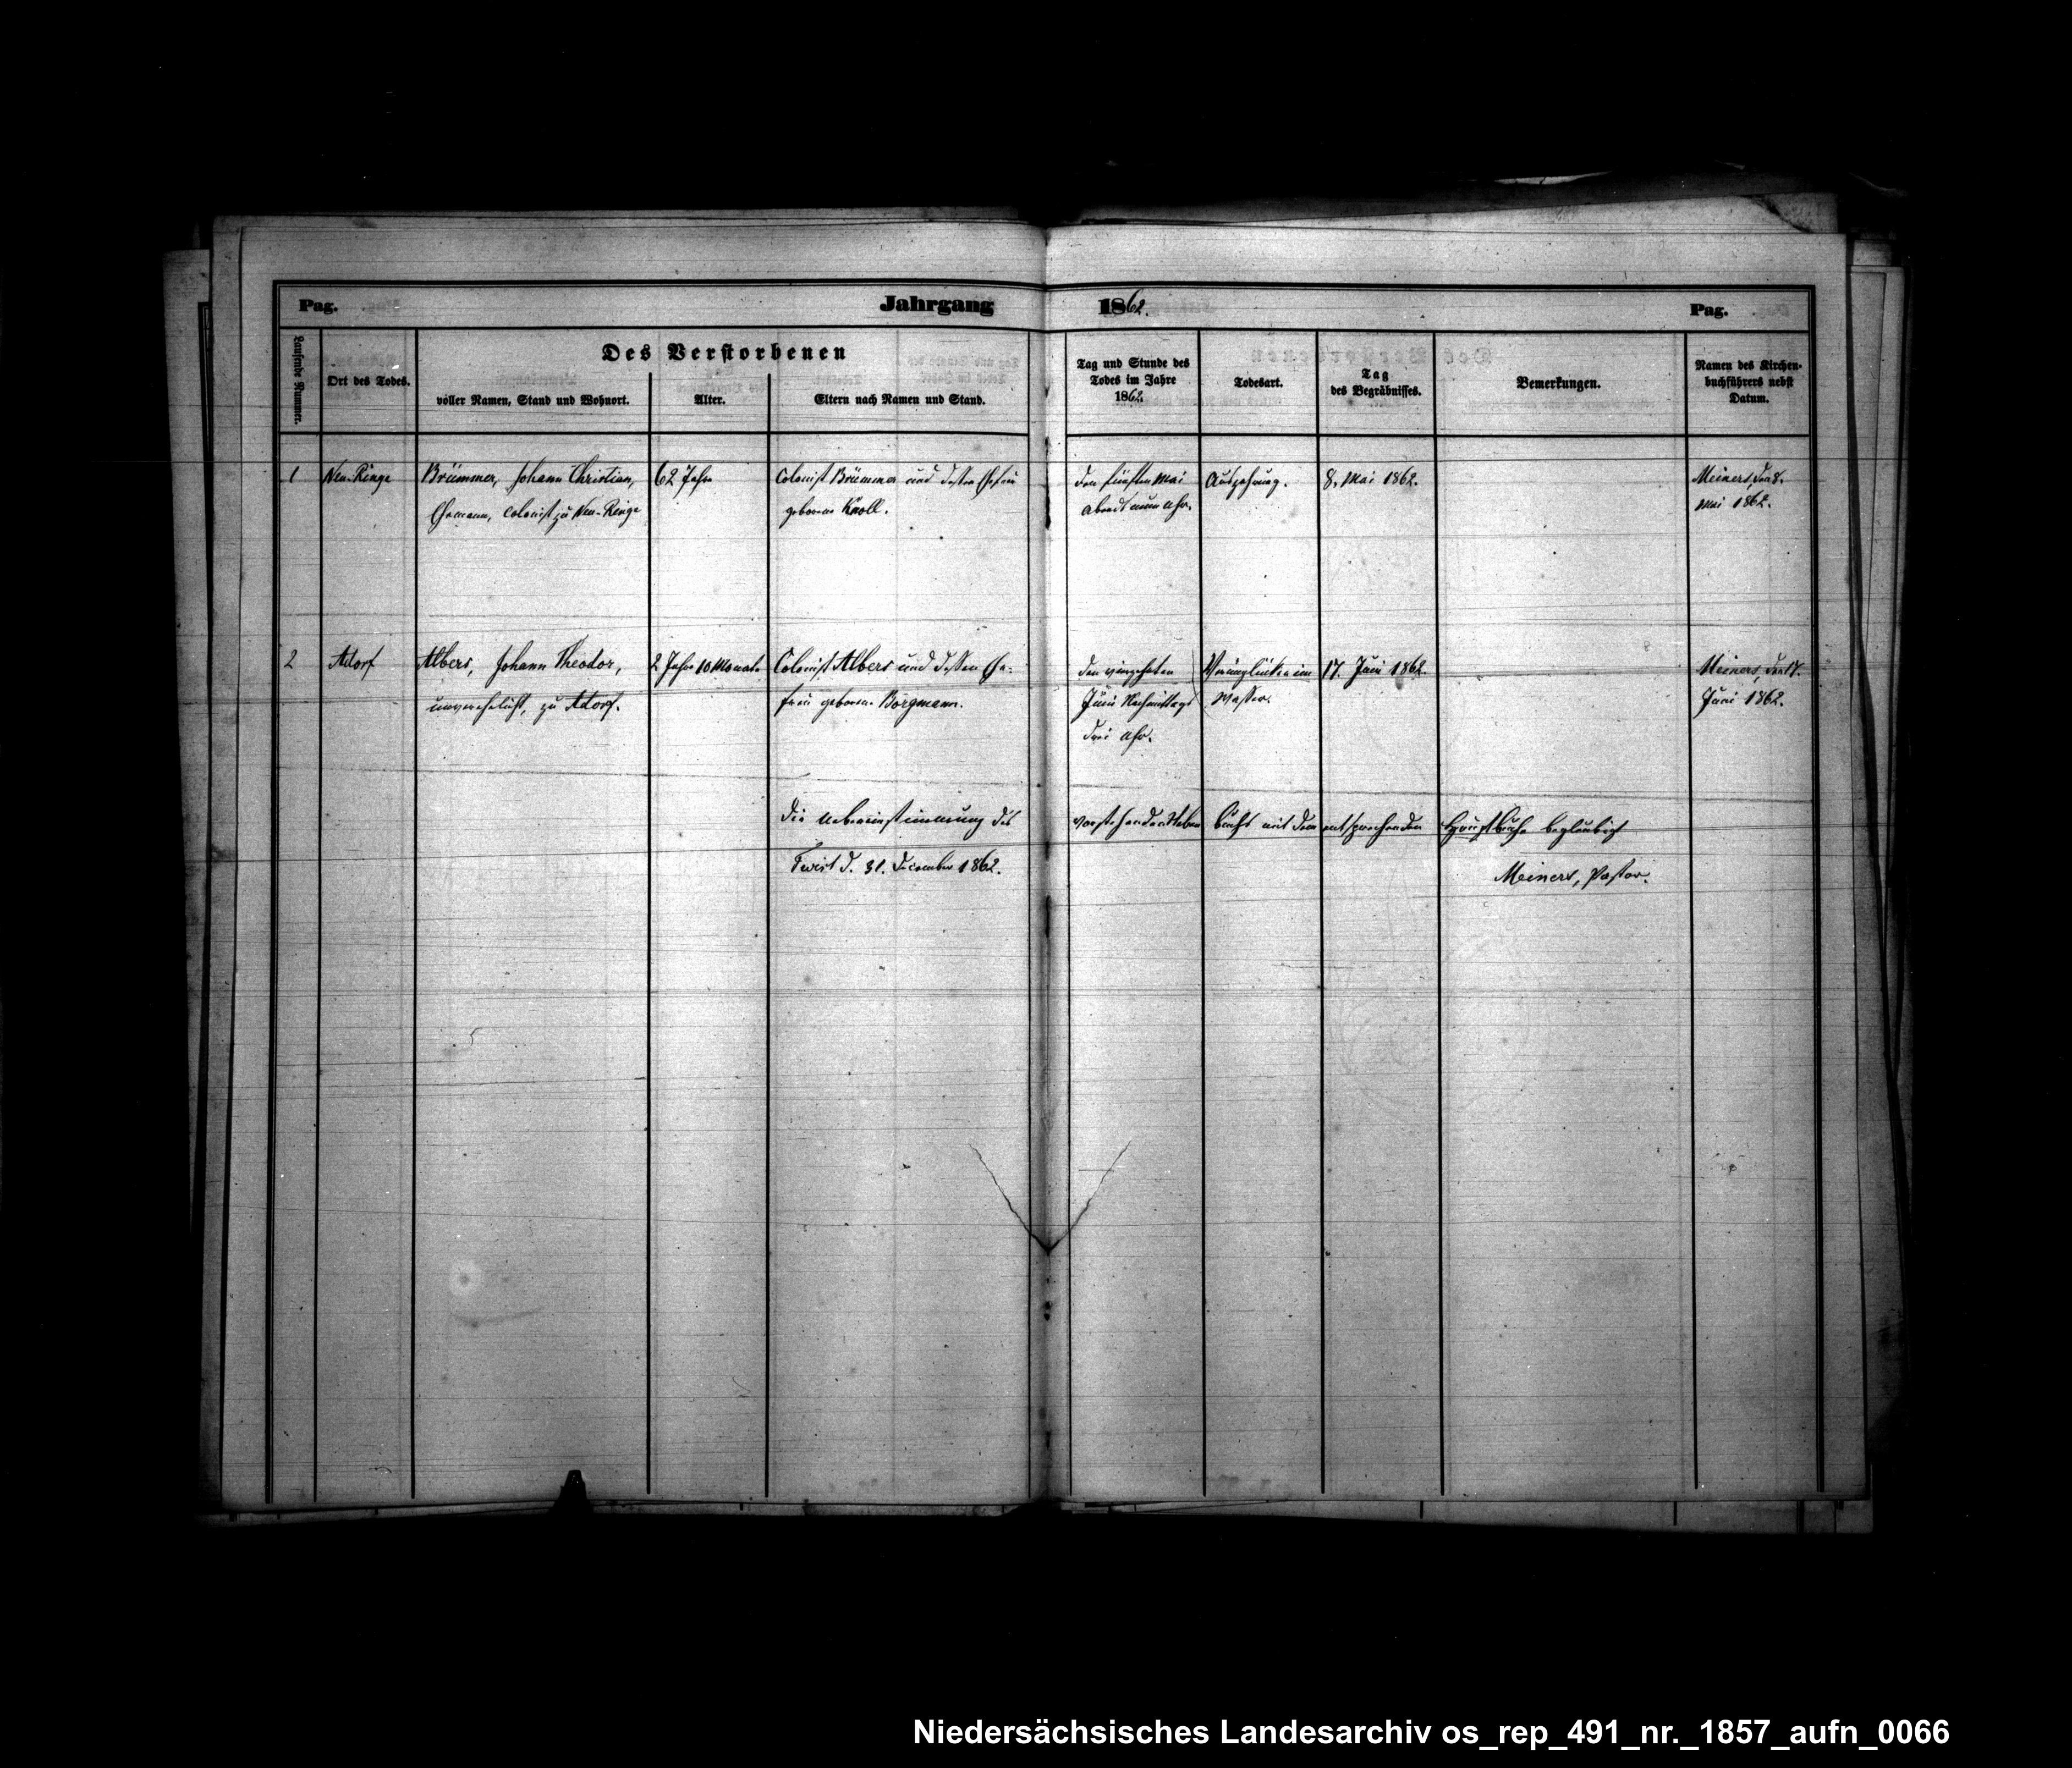 Pag.
Jahrgang 1862.
Pag.
Laufende Nummer.
Ort des Todes.
Des Verstorbenen
voller Namen, Stand und Wohnort.
Alter.
Eltern nach Namen und Stand.
Tag und Stunde des
Todes im Jahre
1862.
Todesart.
Tag
des Begräbnisses.
Bemerkungen.
Namen des Kirchen-
buchführers nebst
Datum.
1
Neu-Ringe
Brümmer, Johann Christian,
Ehemann, Colonist zu Neu-Ringe
62 Jahre
Colonist Brümmer und dessen Ehefrau
geborene Knoll.
den fünften Mai
Abends neun Uhr.
Auszehrung.
8. Mai 1862.
Meiners, den 8.
Mai 1862.
2
Adorf
Albers, Johann Theodor,
unverehelicht, zu Adorf.
2 Jahre 10 Monate
Colonist Albers und dessen Ehe-
frau geborene Borgmann.
den vierzehnten
Juni Nachmittags
drei Uhr.
Verunglückt im
Wasser.
17. Juni 1862.
Meiners, den 17.
Juni 1862.
Die Uebereinstimmung des vorstehenden Neben buchs mit dem entsprechenden Hauptbuche beglaubigt
Twist d. 31. December 1862.
Meiners, Pastor.
Niedersächsisches Landesarchiv os_rep_491_nr._1857_aufn_0066